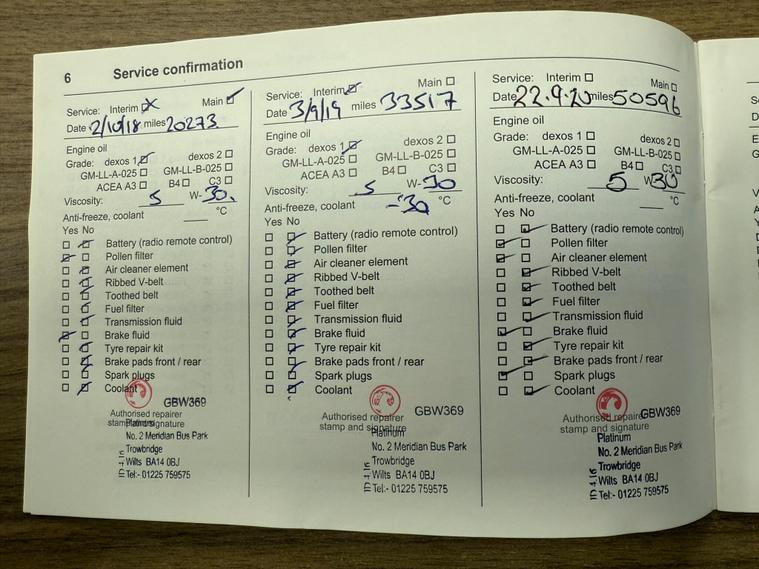 6 Service confirmation
Service: Interim ☒ Main ☑
Date 2/10/18 miles 20273.
Engine oil
Grade: dexos 1 ☑ dexos 2 ☐
GM-LL-A-025 ☐ GM-LL-B-025 ☐
ACEA A3 ☐ B4 ☐ C3 ☐
Viscosity: 5 W-30.
Anti-freeze, coolant ___ °C
Yes No
☐ ☑ Battery (radio remote control)
☑ ☐ Pollen filter
☐ ☑ Air cleaner element
☐ ☑ Ribbed V-belt
☐ ☑ Toothed belt
☐ ☑ Fuel filter
☐ ☑ Transmission fluid
☑ ☐ Brake fluid
☐ ☑ Tyre repair kit
☐ ☑ Brake pads front / rear
☐ ☑ Spark plugs
☐ ☑ Coolant
GBW369
Authorised repairer
stamp and signature
Platinum
No. 2 Meridian Bus Park
Trowbridge
Wilts BA14 0BJ
Tel:- 01225 759575
Service: Interim ☑ Main ☐
Date 3/9/19 miles 33517
Engine oil
Grade: dexos 1 ☑ dexos 2 ☐
GM-LL-A-025 ☐ GM-LL-B-025 ☐
ACEA A3 ☐ B4 ☐ C3 ☐
Viscosity: 5 W-30
Anti-freeze, coolant -30 °C
Yes No
☐ ☑ Battery (radio remote control)
☐ ☑ Pollen filter
☐ ☑ Air cleaner element
☐ ☑ Ribbed V-belt
☐ ☑ Toothed belt
☐ ☑ Fuel filter
☐ ☑ Transmission fluid
☐ ☑ Brake fluid
☐ ☑ Tyre repair kit
☐ ☑ Brake pads front / rear
☐ ☑ Spark plugs
☐ ☑ Coolant
GBW369
Authorised repairer
stamp and signature
Platinum
No. 2 Meridian Bus Park
Trowbridge
Wilts BA14 0BJ
Tel:- 01225 759575
Service: Interim ☐ Main ☐
Date 22.9.20 miles 50596
Engine oil
Grade: dexos 1 ☐ dexos 2 ☐
GM-LL-A-025 ☐ GM-LL-B-025 ☐
ACEA A3 ☐ B4 ☐ C3 ☐
Viscosity: 5 W 30
Anti-freeze, coolant ___ °C
Yes No
☐ ☑ Battery (radio remote control)
☑ ☐ Pollen filter
☑ ☐ Air cleaner element
☐ ☑ Ribbed V-belt
☐ ☑ Toothed belt
☐ ☑ Fuel filter
☐ ☑ Transmission fluid
☑ ☐ Brake fluid
☐ ☑ Tyre repair kit
☐ ☑ Brake pads front / rear
☑ ☐ Spark plugs
☐ ☑ Coolant
GBW369
Authorised repairer
stamp and signature
Platinum
No. 2 Meridian Bus Park
Trowbridge
Wilts BA14 0BJ
Tel:- 01225 759575